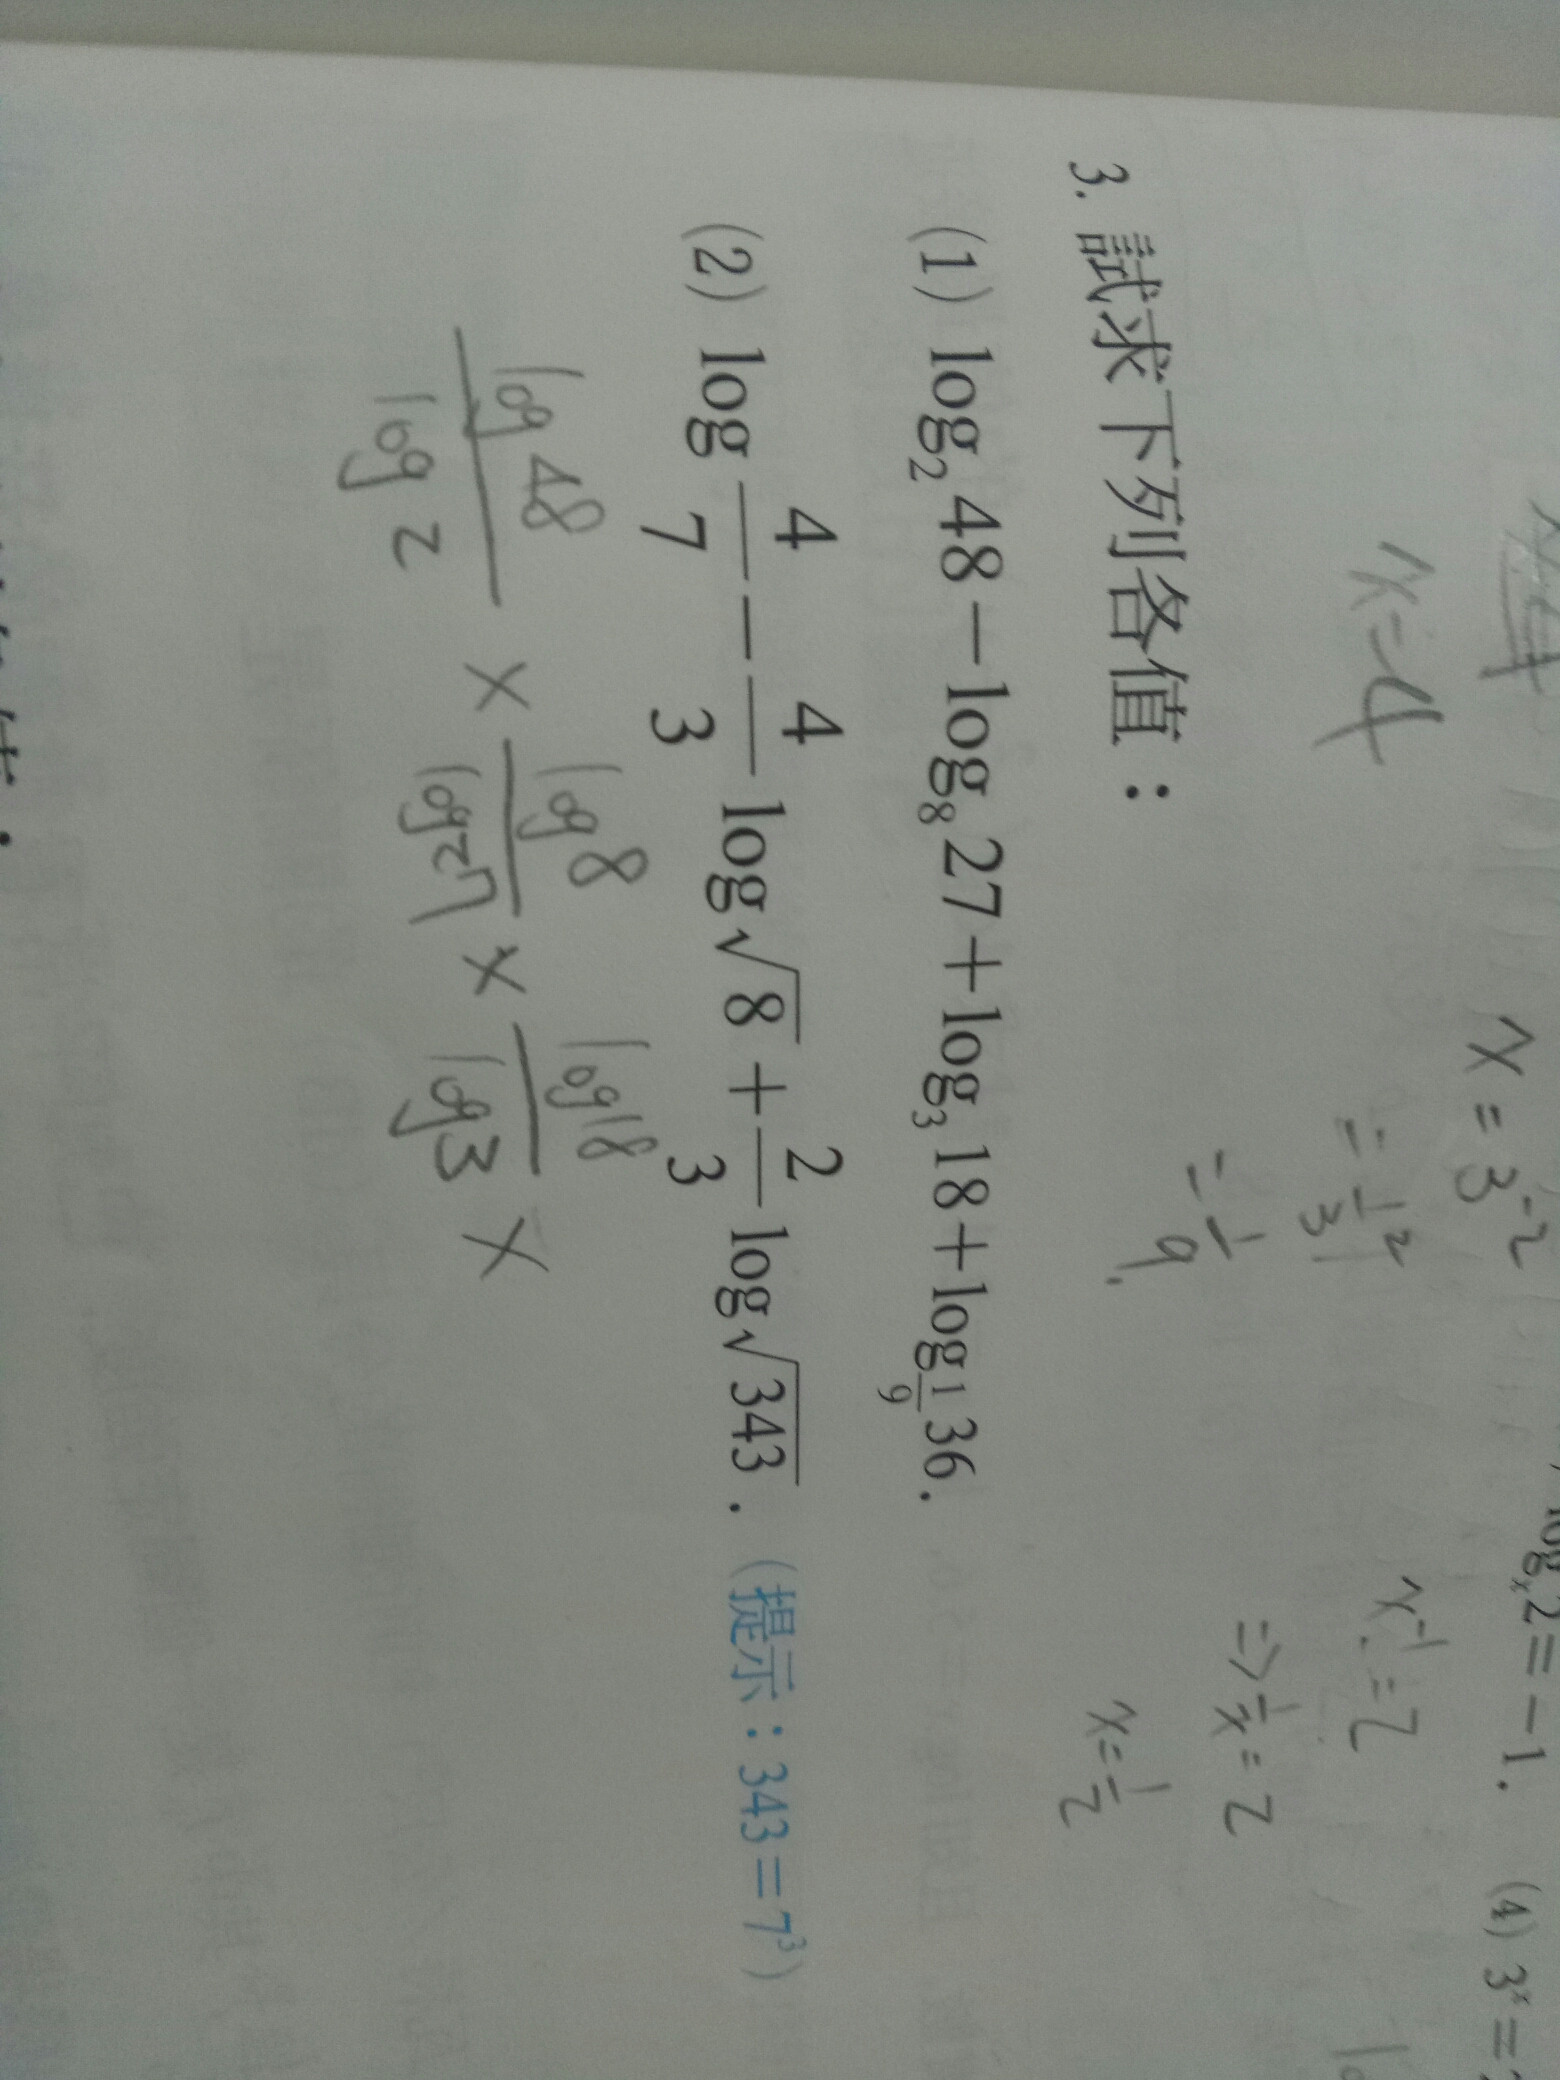 x=4
x=3⁻²
=1/3²
=1/9
log_x 2=-1.
x⁻¹=2
⇒1/x=2
x=1/2
(4) 3ˣ=
3. 試求下列各值：
(1) log₂48－log₈27＋log₃18＋log_{1/9}36.
(2) log 4/7 － 4/3 log√8 ＋ 2/3 log√343 . (提示：343＝7³)
log48/log2 × log8/log27 × log18/log3 ×